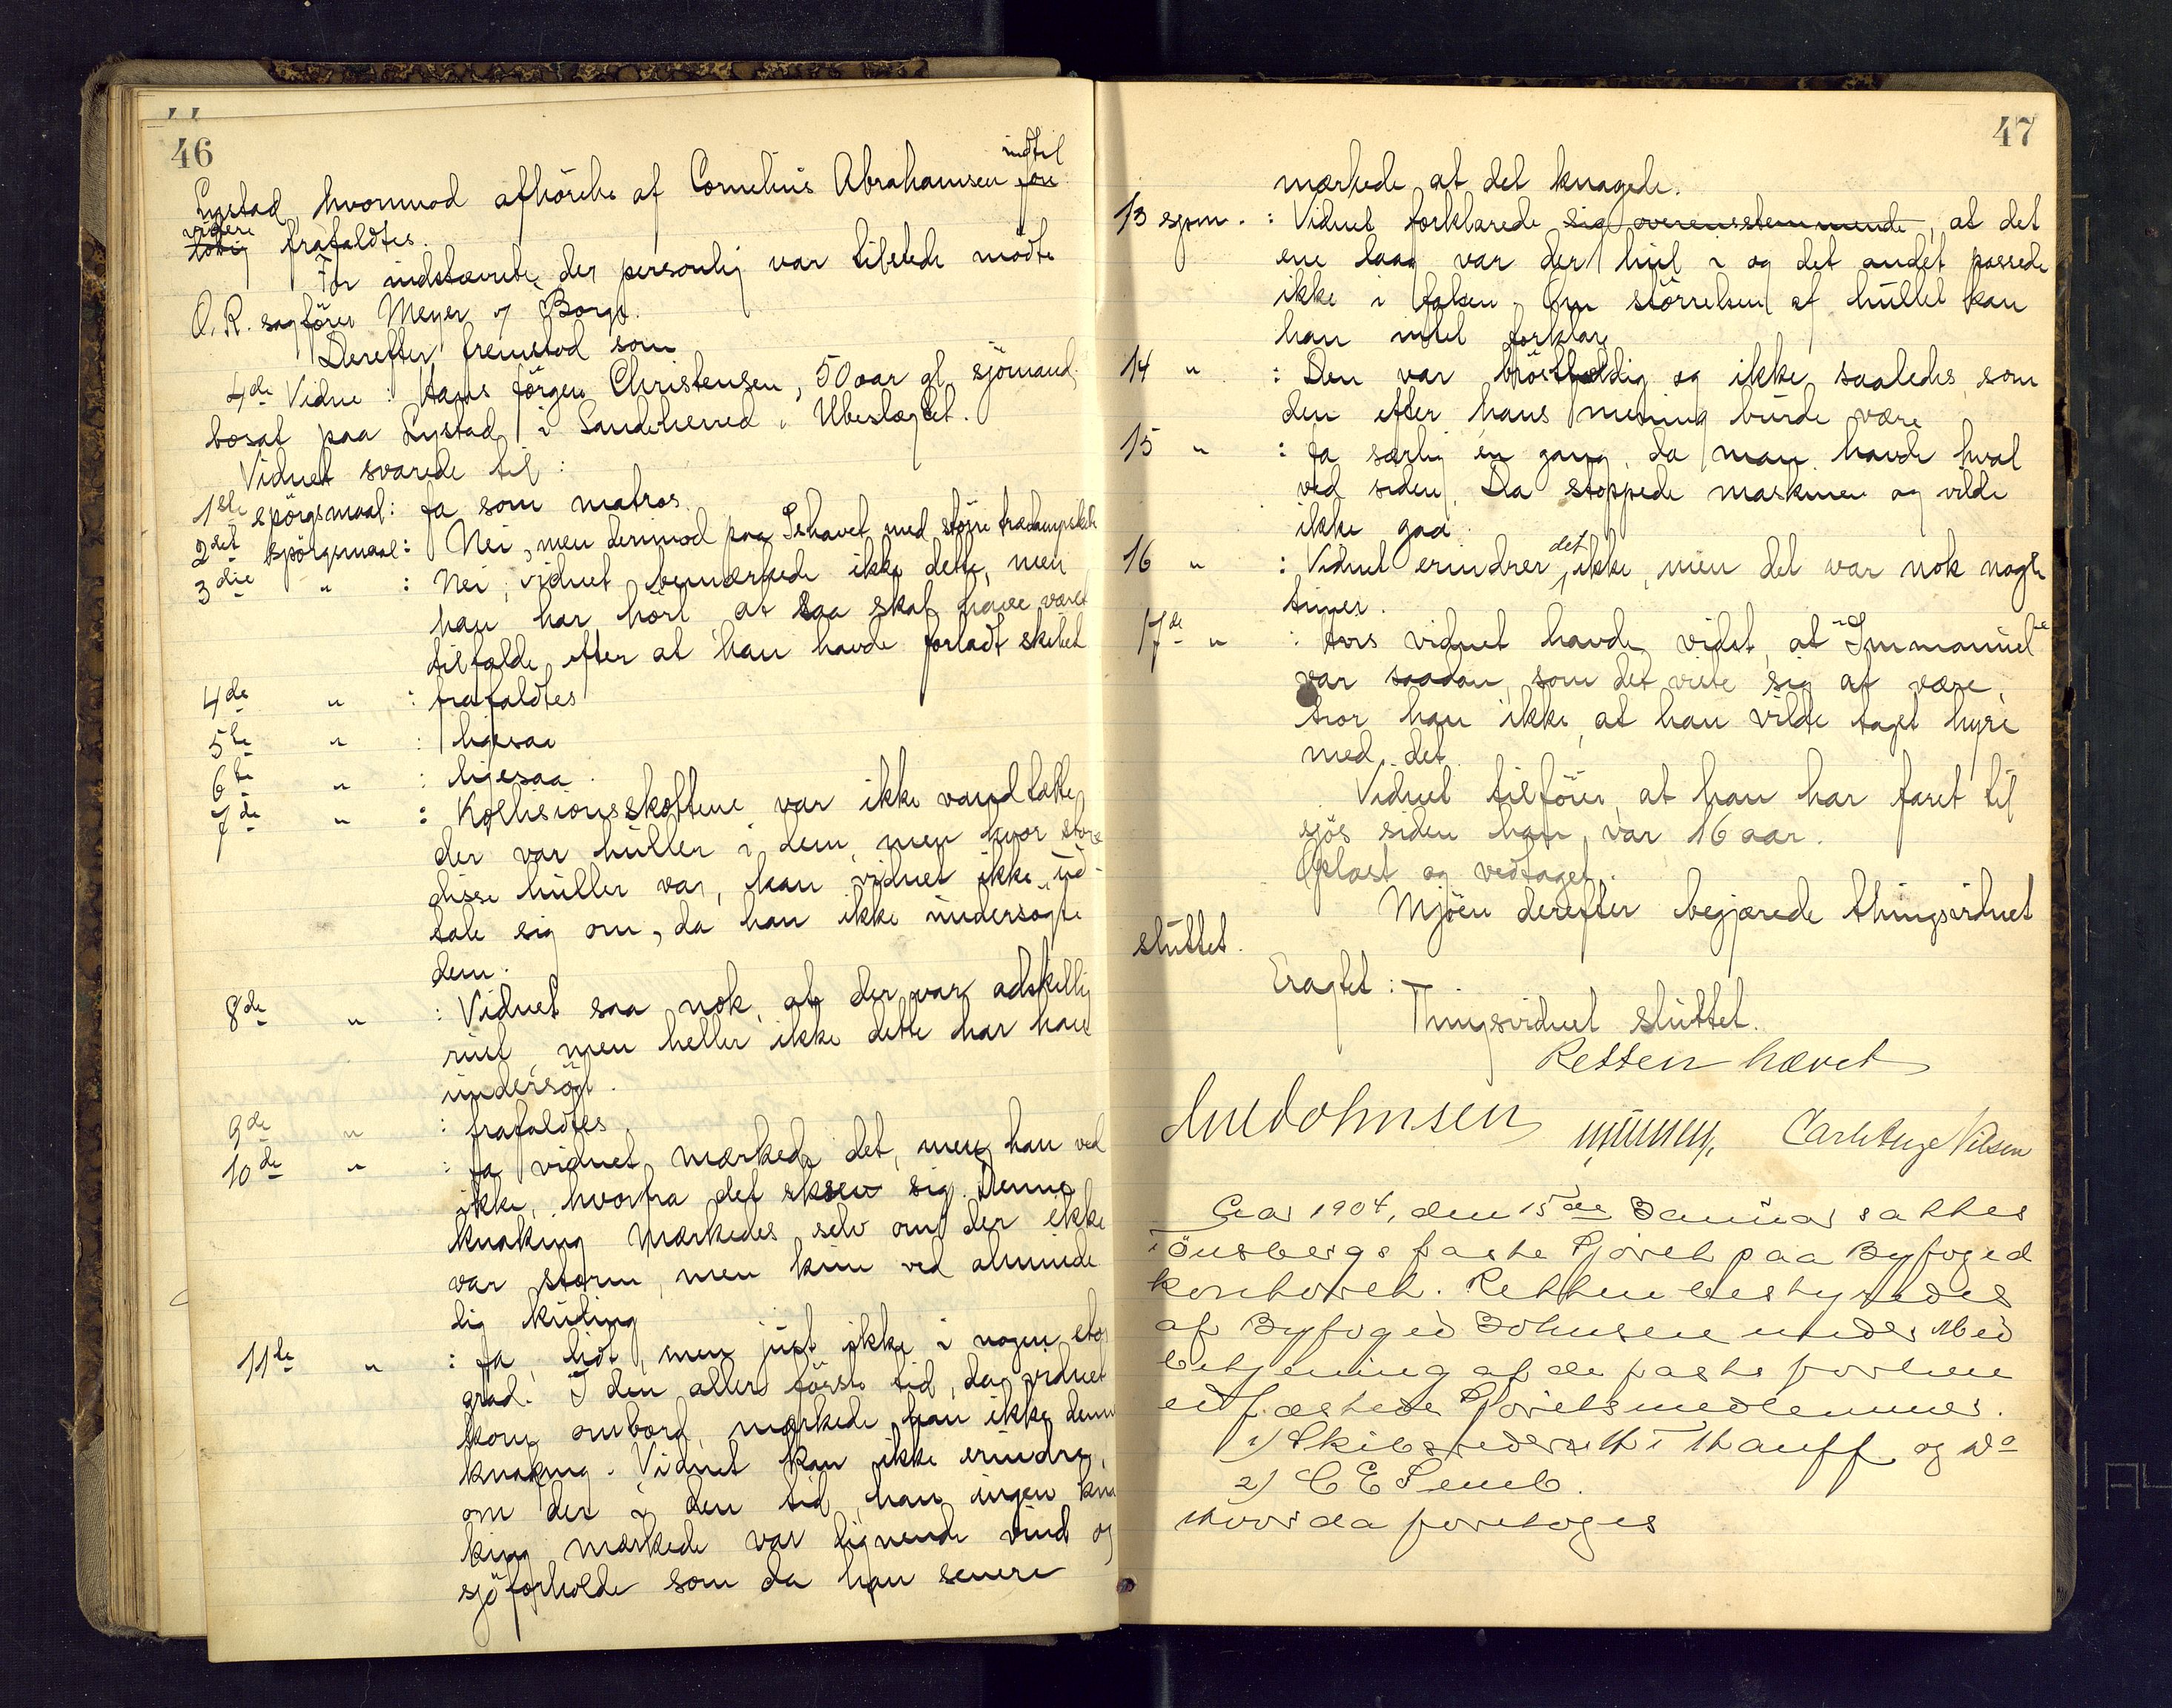 46
Lystad, hvormod afhörelse af Cornelius Abrahamsen indtil
videre frafaldtes.
For indstævnte, der personlig var tilstede mödte
O. R. sagförer Meyer of Borge.
Derefter fremstod som
4de Vidne: Hans Jörgen Christensen, 50 aar gl. sjömand,
bosat paa Lystad i Sandeherred. Ubeslægtet.
Vidnet svarede til:
1ste spörgsmaal: Ja som matros.
2det spörgsmaal: Nei, men derimod paa Ishavet med större trædampskibe
3die " : Nei, vidnet bemærkede ikke dette, men
han har hört at saa skal have været
tilfælde, efter at han havde forladt skibet
4de " : frafaldtes
5te " : ligesaa
6te " : ligesaa.
7de " : Kollisionsskottene var ikke vandtætte,
der var huller i dem, men hvor store
disse huller var, kan vidnet ikke ud-
tale sig om, da han ikke undersögte
dem.
8de " : Vidnet saa nok, at der var adskillig
rust, men heller ikke dette har han
undersögt.
9de " : frafaldtes.
10de " : Ja vidnet mærkede det, men han ved
ikke, hvorfra det skrev sig. Denne
knaking mærkedes selv om der ikke
var storm, men kun ved alminde
lig kuling
11te " : Ja, lidt, men just ikke i nogen stor
grad. I den aller förste tid, da vidnet
kom ombord, mærkede han ikke denne
knaking. Vidnet kan ikke erindre,
om der i den tid, han ingen kna
king mærkede var lignende vind og
sjöforholde som da han senere
47
mærkede at det knagede.
13 spm. : Vidnet forklarede sig overensstemmende, at det
ene laag var der hul i og det andet passede
ikke i falsen. Om störrelsen af hullet kan
han intet forklare
14 " : Den var bröstfældig og ikke saaledes, som
den efter hans mening burde være
15 " : Ja særlig én gang, da man havde hval
ved siden. Da stoppede maskinen og vilde
ikke gaa.
16 " : Vidnet erindrer det ikke, men det var nok nogle
timer.
17de " : Hvis vidnet havde vidst, at "Immanuel"
var saadan, som det viste sig at være,
tror han ikke, at han vilde taget hyre
med det.
Vidnet tilföier, at han har faret til
sjös siden han var 16 aar.
Oplæst og vedtaget.
Mjöen derefter begjærede thingsvidnet
sluttet.
Eragtet:
Thingsvidnet sluttet.
Retten hævet
Johnsen Carl Aage Nilsen
Aar 1904, den 15de Januar sattes
Tönsbergs faste Sjöret paa Byfoged
kontoret. Retten bestyredes
af Byfoged Johnsen under Med
betjening af de faste forhen
edfæstede Sjöretsmedlemmer.
1) Skibsreder Hauff og Do
2) C E Semb.
Hvorda foretoges